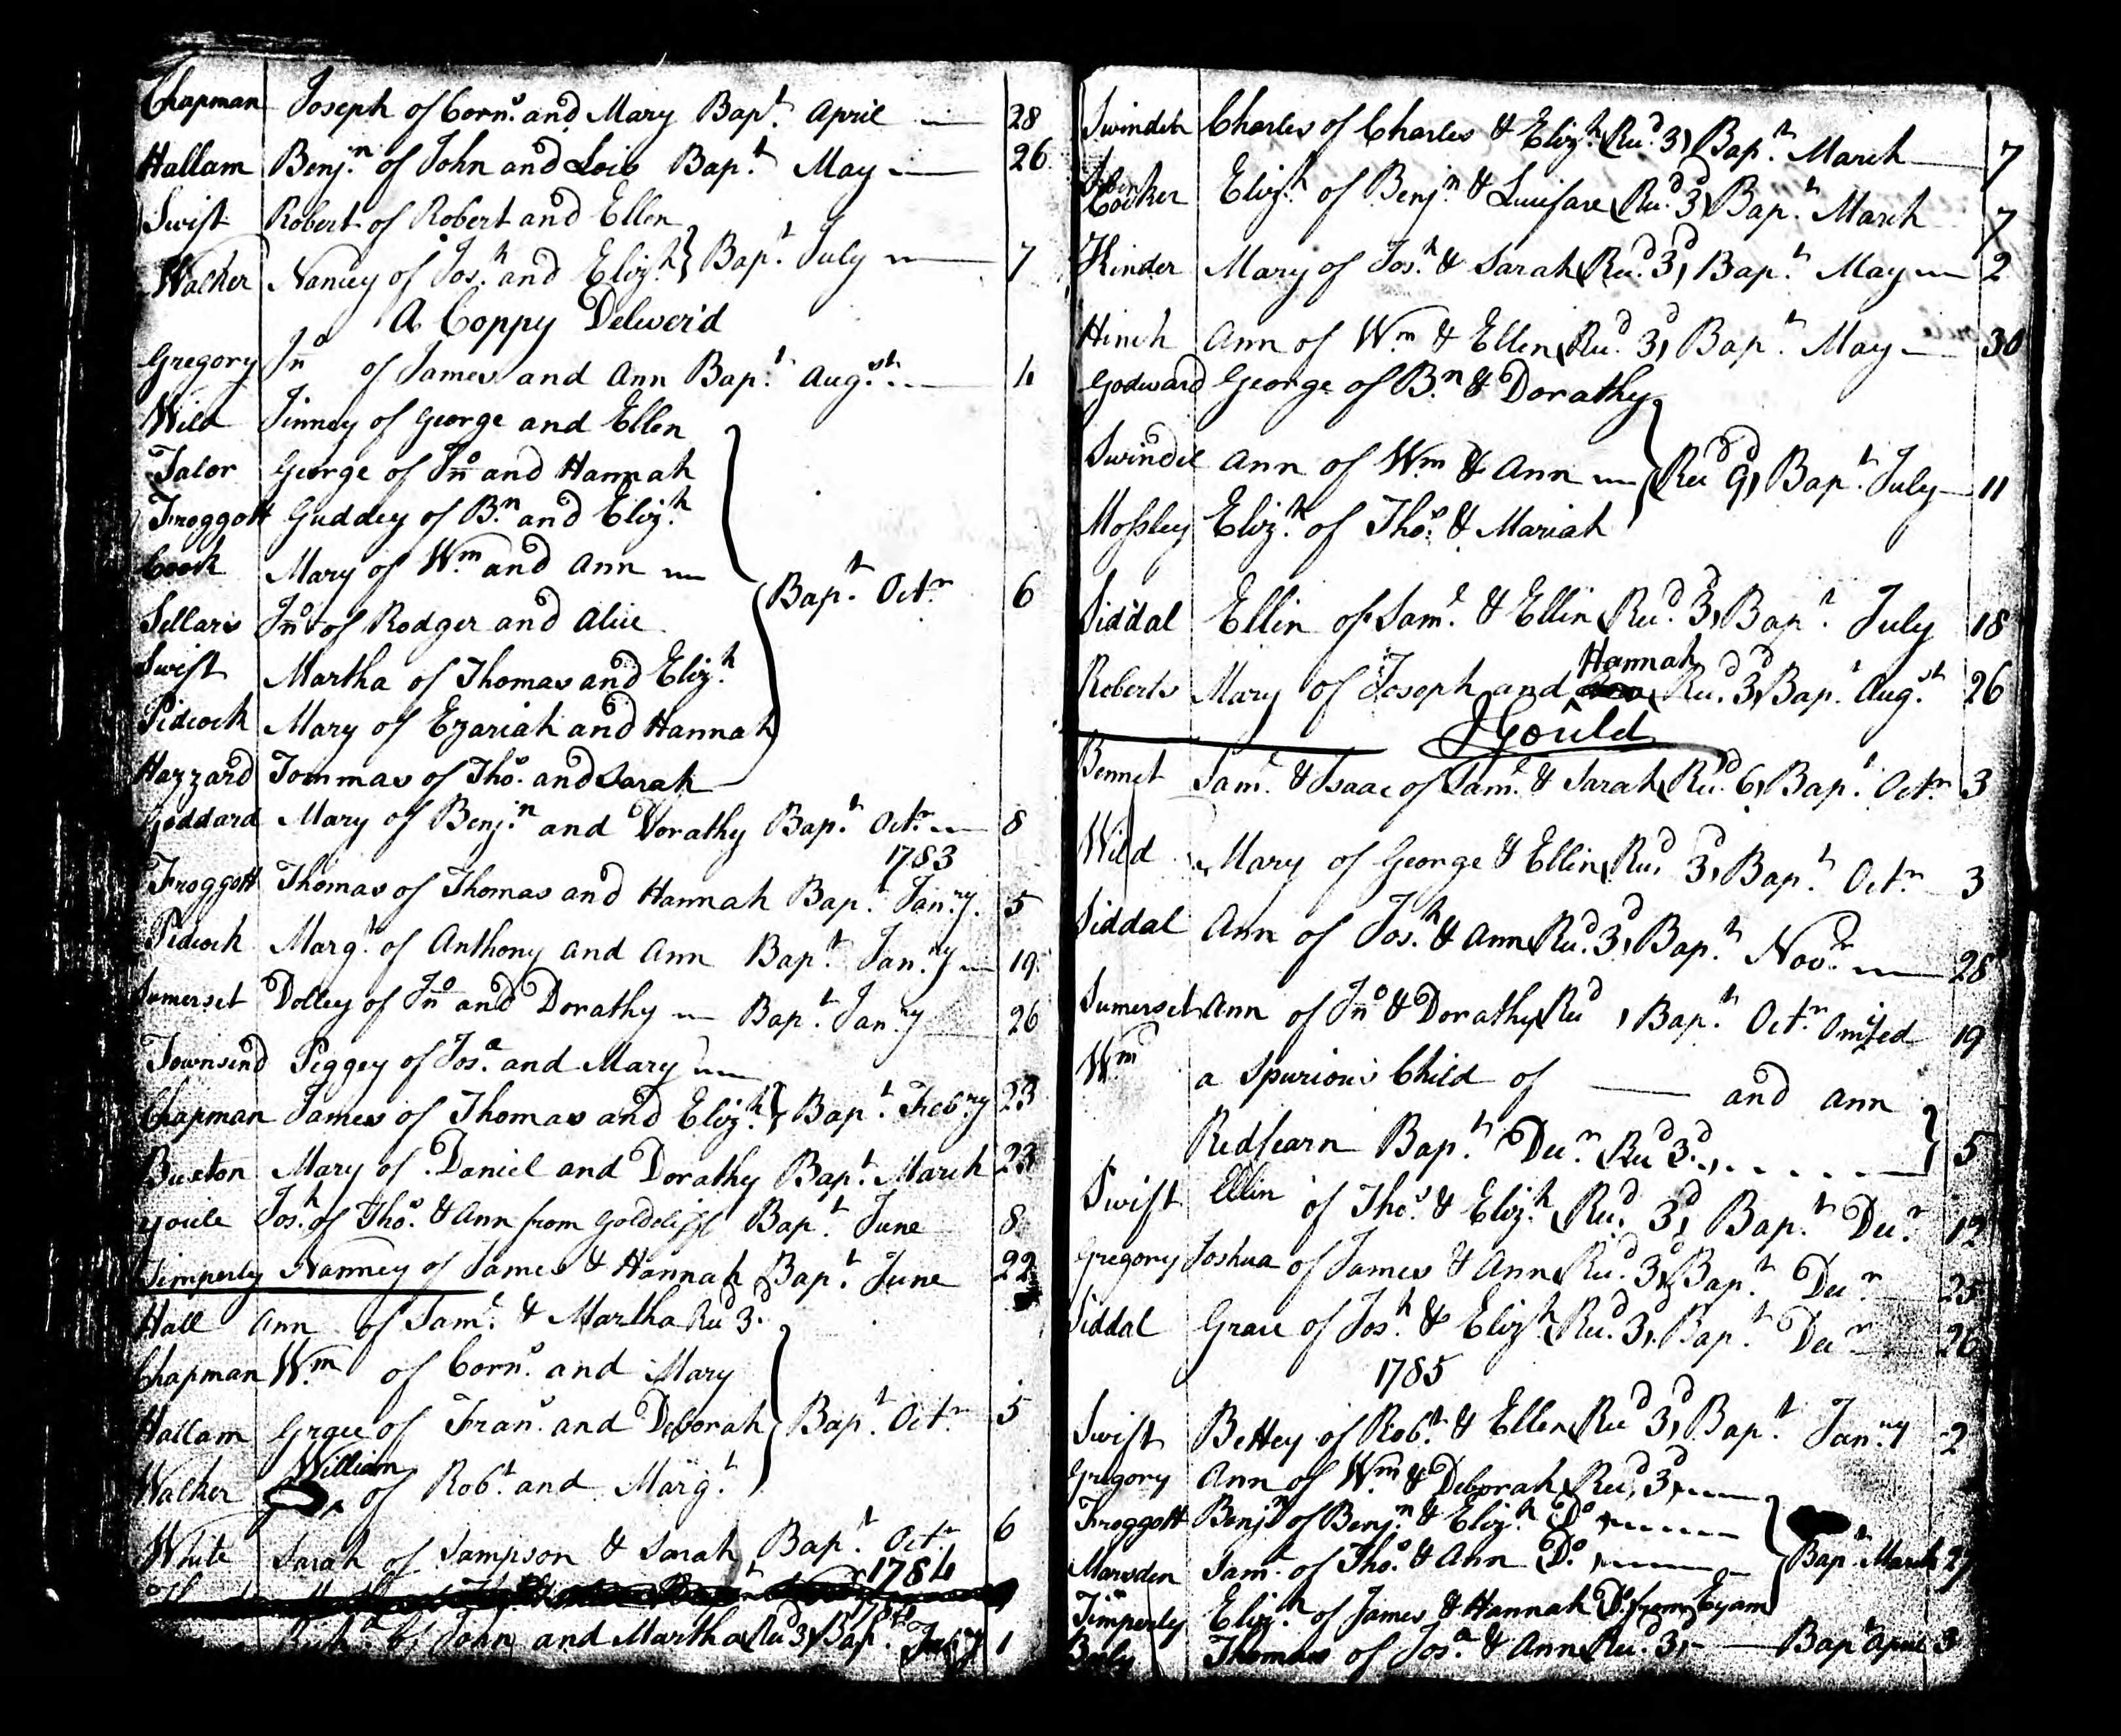 Chapman Joseph of Corns. and Mary Bapt. April 28
Hallam Benjn. of John and Lois Bapt. May 26
Swift Robert of Robert and Ellen
Walker Nancey of Josh. and Elizh. Bapt. July 7
A Coppy Deliver'd
Gregory Jno of James and Ann Bapt. Augst. 4
Wild Jinney of George and Ellen
Talor George of Jno and Hannah
Froggott Guddey of Bn. and Elizh.
Cook Mary of Wm. and Ann
Sellars Jno of Rodger and Alice Bapt. Octr. 6
Swift Martha of Thomas and Elizh.
Pidcock Mary of Ezariah and Hannah
Hazzard Tommas of Thos. and Sarah
Goddard Mary of Benjn. and Dorathy Bapt. Octr. 8
1783
Froggott Thomas of Thomas and Hannah Bapt. Janry. 5
Pidcock Margt. of Anthony and Ann Bapt. Janry. 19
Somerset Dolley of Jno and Dorathy Bapt. Janry 26
Townsend Peggey of Josa. and Mary
Chapman James of Thomas and Elizh. Bapt. Febry 23
Buxton Mary of Daniel and Dorathy Bapt. March 23
Youle Josh. of Thos. & Ann from Bapt. June 8
Timperley Nanney of James & Hannah Bapt. June 22
Hall Ann of Saml. & Martha Recd 3d.
Chapman Wm. of Corns. and Mary
Hallam Grace of Frans. and Deborah Bapt. Octr. 5
William
Walker of Robt. and Margt.
White Sarah of Sampson & Sarah Bapt. Octr. 6
1784
of John and Martha Recd 3d Bapt. 1
Swindel Charles of Charles & Elizh. Recd. 3d Bapt. March 7
Cocker Elizh. of Benjn. & Lucifare Recd. 3d Bapt. March 7
Kinder Mary of Josh. & Sarah Recd. 3d, Bapt. May 2
Hinch Ann of Wm & Ellen Recd. 3d, Bapt. May 30
Godward George of Bn. & Dorathy
Swindel Ann of Wm. & Ann Recd 9d, Bapt. July 11
Mossley Elizh. of Thos. & Mariah
Siddal Ellin of Saml. & Ellin Recd. 3d, Bapt. July 18
Hannah
Roberts Mary of Joseph and Recd. 3d, Bapt. Augst. 26
J Gould
Bennet Saml. & Isaac of Saml. & Sarah Recd. 6d, Bapt. Octr. 3
Wild Mary of George & Ellin Recd. 3d, Bapt. Octr. 3
Siddal Ann of Josh. & Ann Recd. 3d, Bapt. Novr. 28
Sumerset Ann of Jno & Dorathy Recd , Bapt. Octr. Omited 19
Wm. a Spurious Child of —— and Ann
Redfearn Bapt. Decr. Recd 3d. 5
Swift Ellin of Thos. & Elizh. Recd. 3d, Bapt. Decr. 12
Gregory Joshua of James & Ann Recd. 3d, Bapt. Decr. 25
Siddal Grace of Josh. & Elizh. Recd. 3d, Bapt. Decr. 26
1785
Swift Bettey of Robt. & Ellen Recd 3d, Bapt. Janry 2
Gregory Ann of Wm. & Deborah Recd. 3d,
Froggott Benjn of Benjn. & Elizh. Do
Marsden Saml. of Thos. & Ann Do. Bapt. March 27
Timperley Elizh. of James & Hannah Do. from Eyam
Thomas of Josa. & Ann Recd. 3d, Bapt April 3